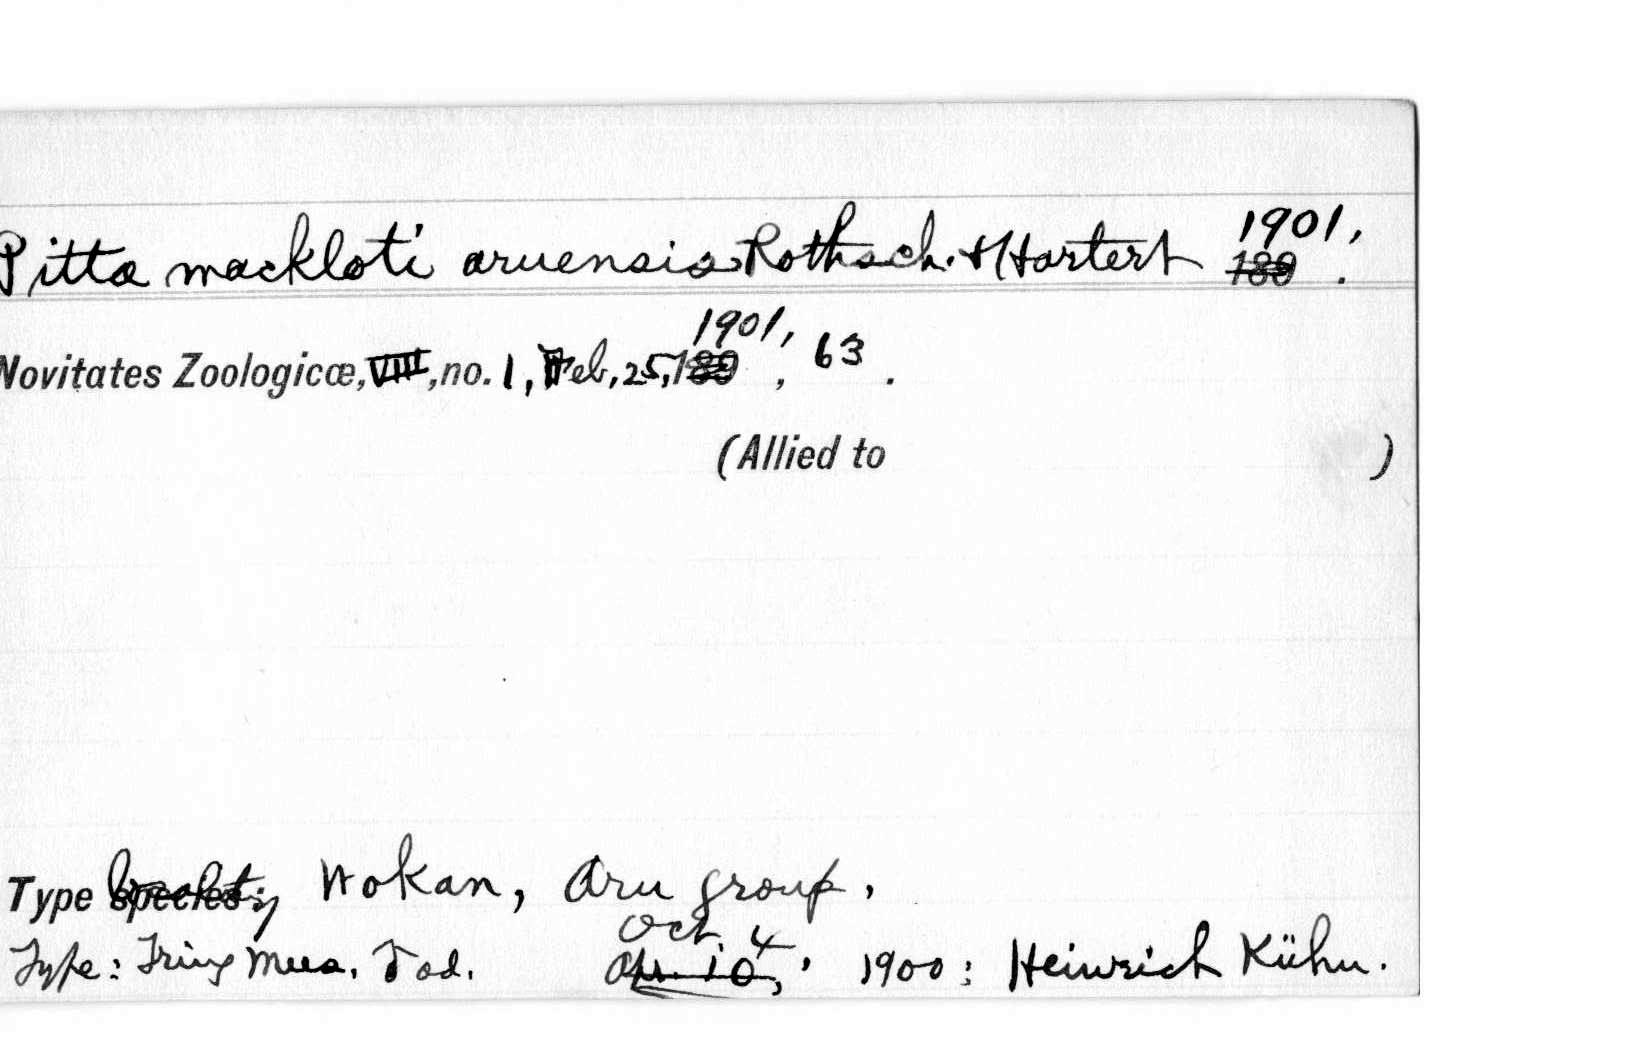 Pitta mackloti aruensis Rothsch. & Hartert 1901, 189 .
Novitates Zoologicæ, VIII, no. 1, Feb, 25, 1901, 189 , 63 .
(Allied to )
Type species: locality Wokan, Aru group,
Type: Tring Mus. ♂ ad. Oct. 4 Apr. 10, , 1900 : Heinrich Kühn.